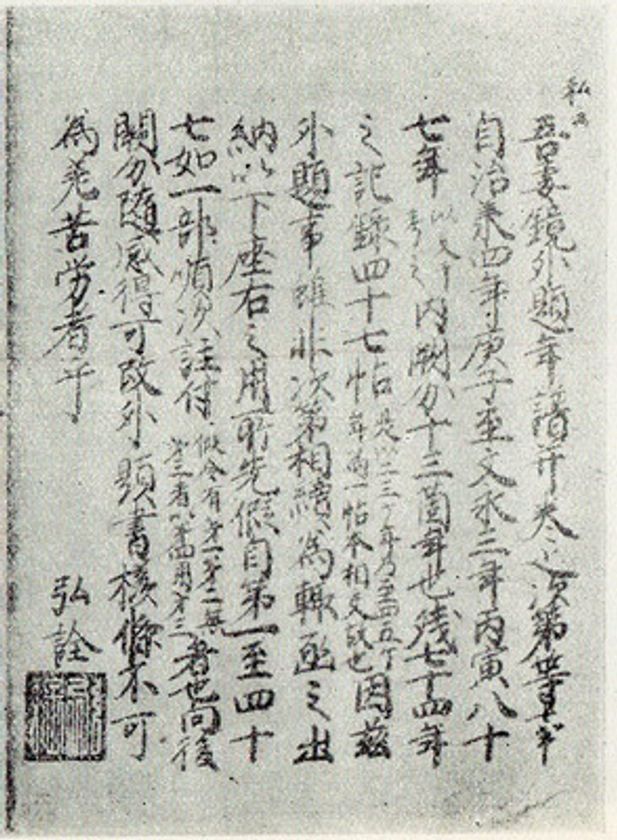 私云
吾妻鏡外題年譜并夫之次第
自治承四年庚子至文永三年丙寅八十
七年以文ノ下考之内闕分十三箇年也残七十四年
之記録四十七帖是以二三ケ年乃至四五ケ年為一帖不相交故也因茲
外題事雖非次第相續為輙函之出
納以下座右之用所先假自第一至四十
七如一部順次註付假令有第一第二無第三者以第四用第三者也向後
闕分随感得可改外題書核條不可
為羌苦労者乎
弘詮